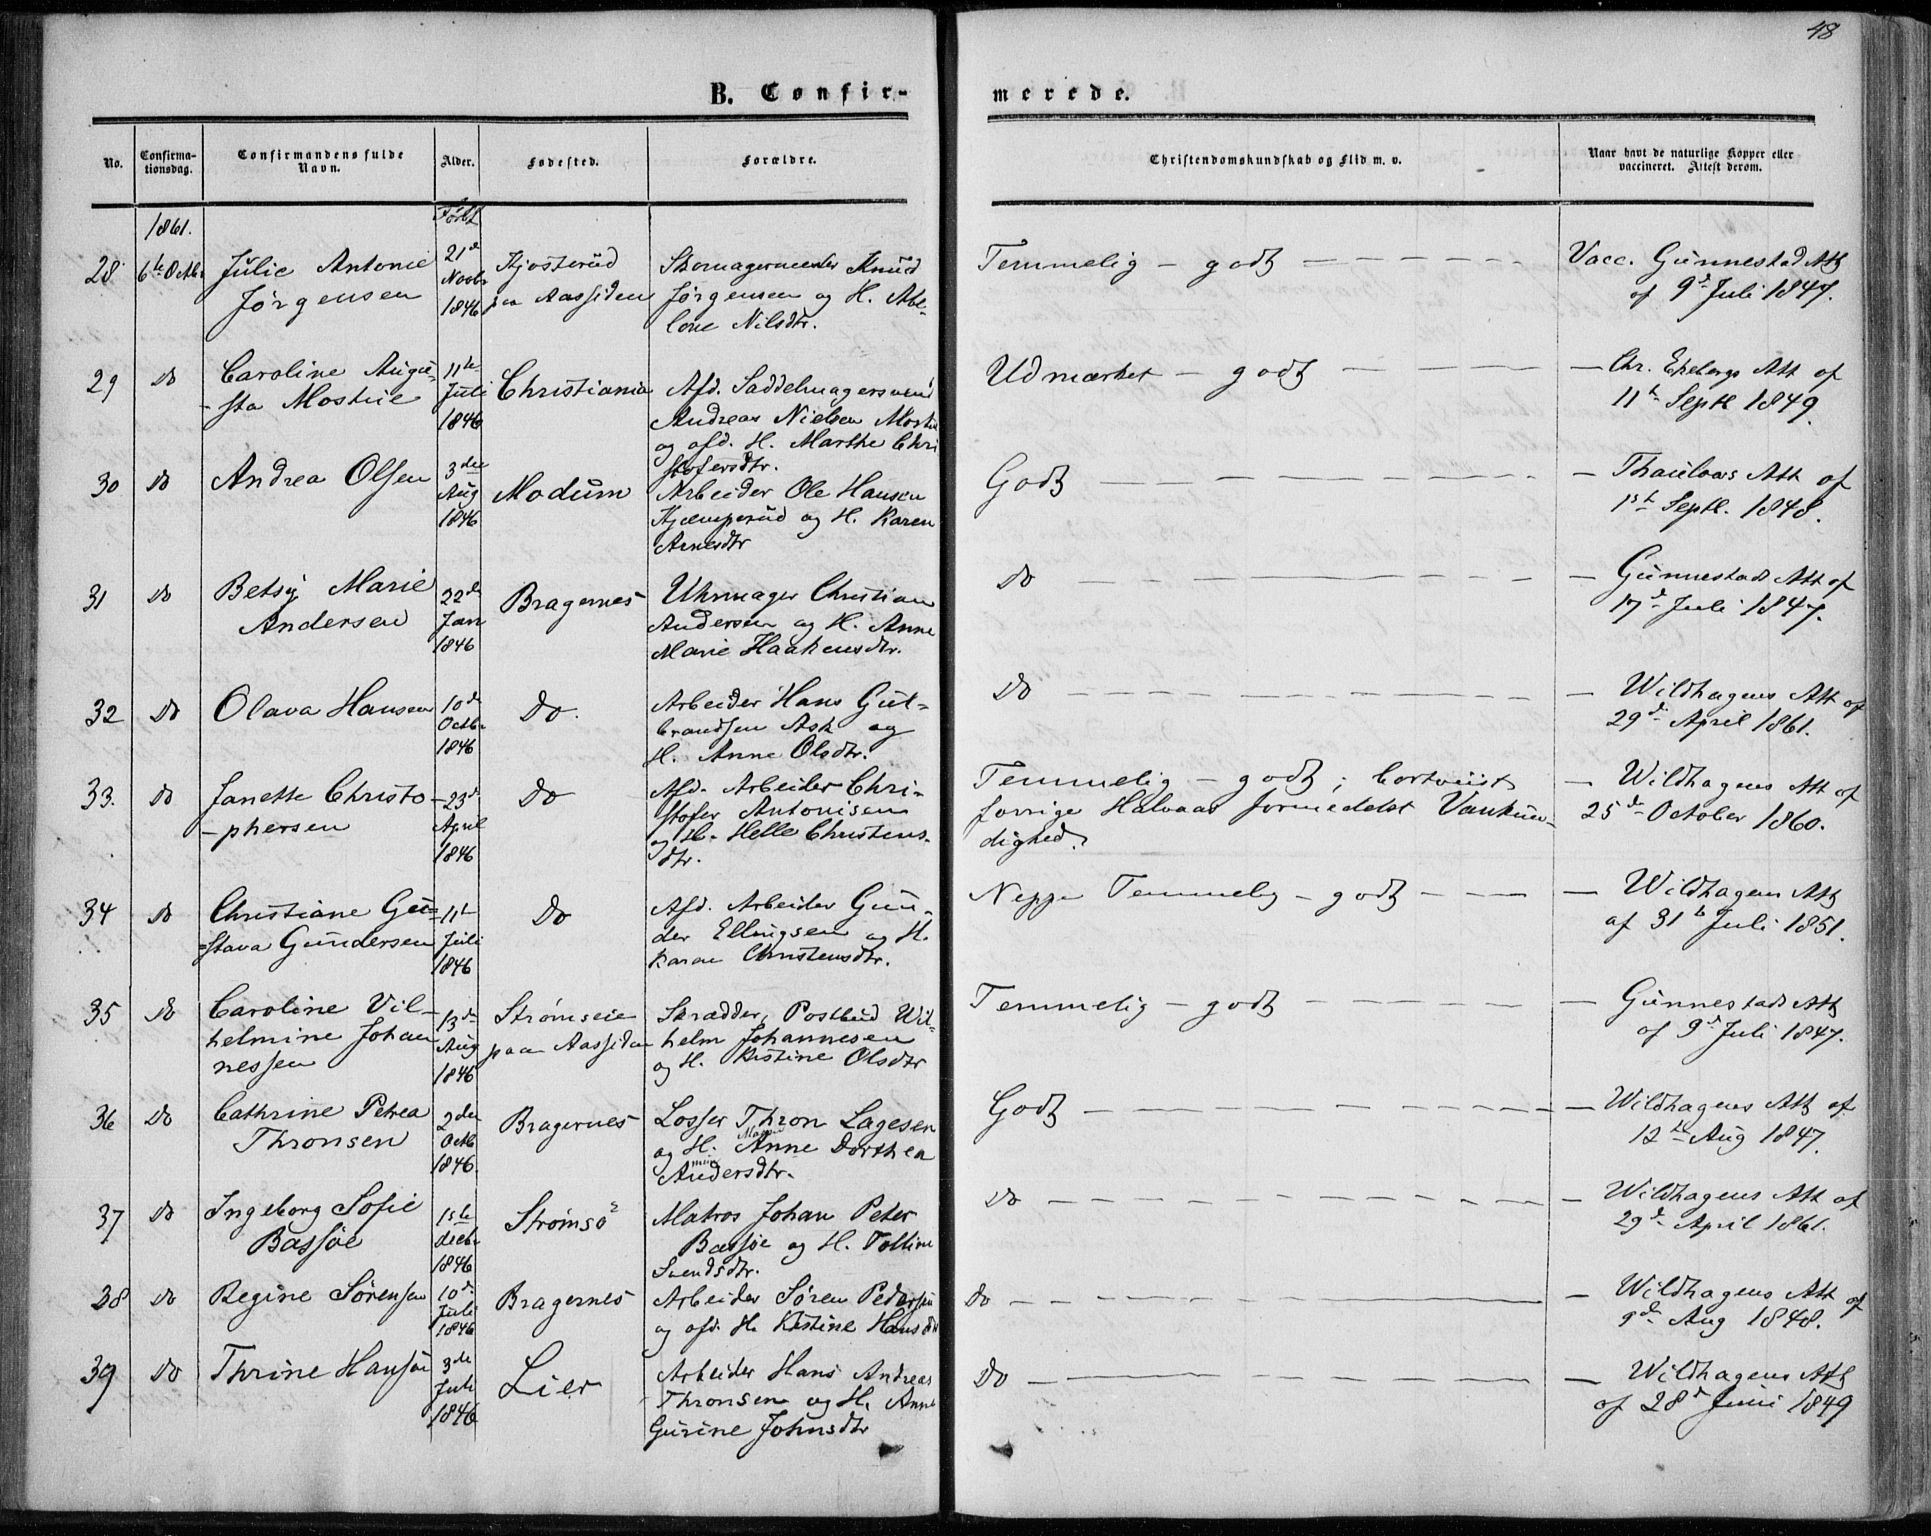 48
B. Confir-
merede.
No.
Confirma-
tionsdag.
Confirmandens fulde
Navn.
Alder.
Fødested.
Forældre.
Christendomskundskab og Flid m. v.
Naar havt de naturlige Kopper eller
vaccineret. Attest derom.
1861.
Født
28 6te Octbr Julie Antonie
Jørgensen
21de
Novbr
1846
Kjosterud
paa Aassiden
Skomagermester Knud
Jørgensen og H. Abe-
lone Nilsdtr.
Temmelig - godt
Vacc. Gunnestad Att
af 9de Juli 1847.
29 Do Caroline Augu-
-sta Mostue
11te
Juli
1846
Christiania
Afd. Saddelmagersvend
Andreas Nielsen Mostue
og afd. H. Marthe Chri
stofersdtr.
Udmærket - godt
- Chr. Ekebergs Att af
11te Septb 1849.
30 Do Andrea Olsen
3die
Aug
1846
Modum
Arbeider Ole Hansen
Kjæmperud og H. Karen
Arnesdtr
Godt
- Thaulows Att af
1ste Septb. 1848.
31 Do Betsy Marie
Andersen
22de
Jan
1846
Bragernes
Uhrmager Christian
Andersen og H. Anne
Marie Haakensdtr.
Do
- Gunnestads Att af
17de Juli 1847.
32 Do Olava Hansen
10de
Octbr
1846
Do.
Arbeider Hans Gul-
brandsen Ask og
H. Anne Olsdtr.
Do
- Wildhagens Att af
29de April 1861.
33. Do Janette Christo-
-phersen
23de
April
1846
Do
Afd. Arbeider Chri-
stofer Antonisen
og H. Helle Christens-
dtr.
Temmelig - godt; bortviist
forrige Halvaar formedelst Vankun-
dighed.
- Wildhagens Att af
25de October 1860.
34 Do Christiane Gu-
=stava Gundersen
11te
Juli
1846
Do
Afd. Arbeider Gun-
der Ellingsen og H.
Karen Christensdtr.
Neppe Temmelig - godt
- Wildhagens Att
af 31te Juli 1851.
35 Do Caroline Vil-
helmine Johan
nessen
13de
Aug
1846
Strømseie
paa Aassiden
Skrædder, Postbud Wil-
helm Johannesen
og H. Kistine Olsdtr
Temmelig - godt
- Gunnestads Att
af 9de Juli 1847.
36 Do Cathrine Petrea
Thronsen
2den
Octb
1846.
Bragernes
Losser Thron Lagesen
og H. Anne Dorthea
Andersdtr.
Godt
- Wildhagens Att af
12te Aug 1847.
37 Do Ingeborg Sofie
Bassøe
1ste
Decbr
1846
Strømsö
Matros Johan Peter
Bassøe og H. Tolline
Svendsdtr.
Do
- Wildhagens Att af
29de April 1861.
38 Do Regine Sørensen
10de
Juli
1846
Bragernes
Arbeider Søren Pedersen
og afd. H. Kistine Hansdtr
Do
- Wildhagens Att af
9de Aug 1848.
39 Do Thrine Hansen
3die
Juli
1846
Lier
Arbeider Hans Andreas
Thronsen og H. Anne
Gurine Johnsdtr
Do
- Wildhagens Att
af 28de Juni 1849